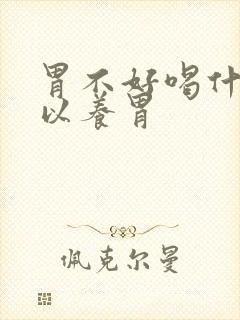 胃不好喝什
以养胃
佩克尔曼